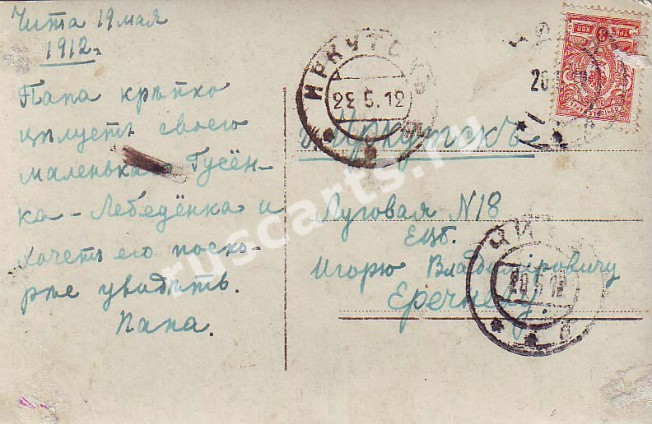 Чита 19 мая
1912 г.
Папа крѣпко
цѣлуетъ своего
маленька Гусён-
ка - Лебедёнка и
хочетъ его поско-
рѣе увидѣть.
Папа.
ИРКУТСКЪ
23 5.12
г. Иркутскъ
Луговая N 18
Игорю Владиміровичу
ЧИТА
20.5.12
ruscarts.ru